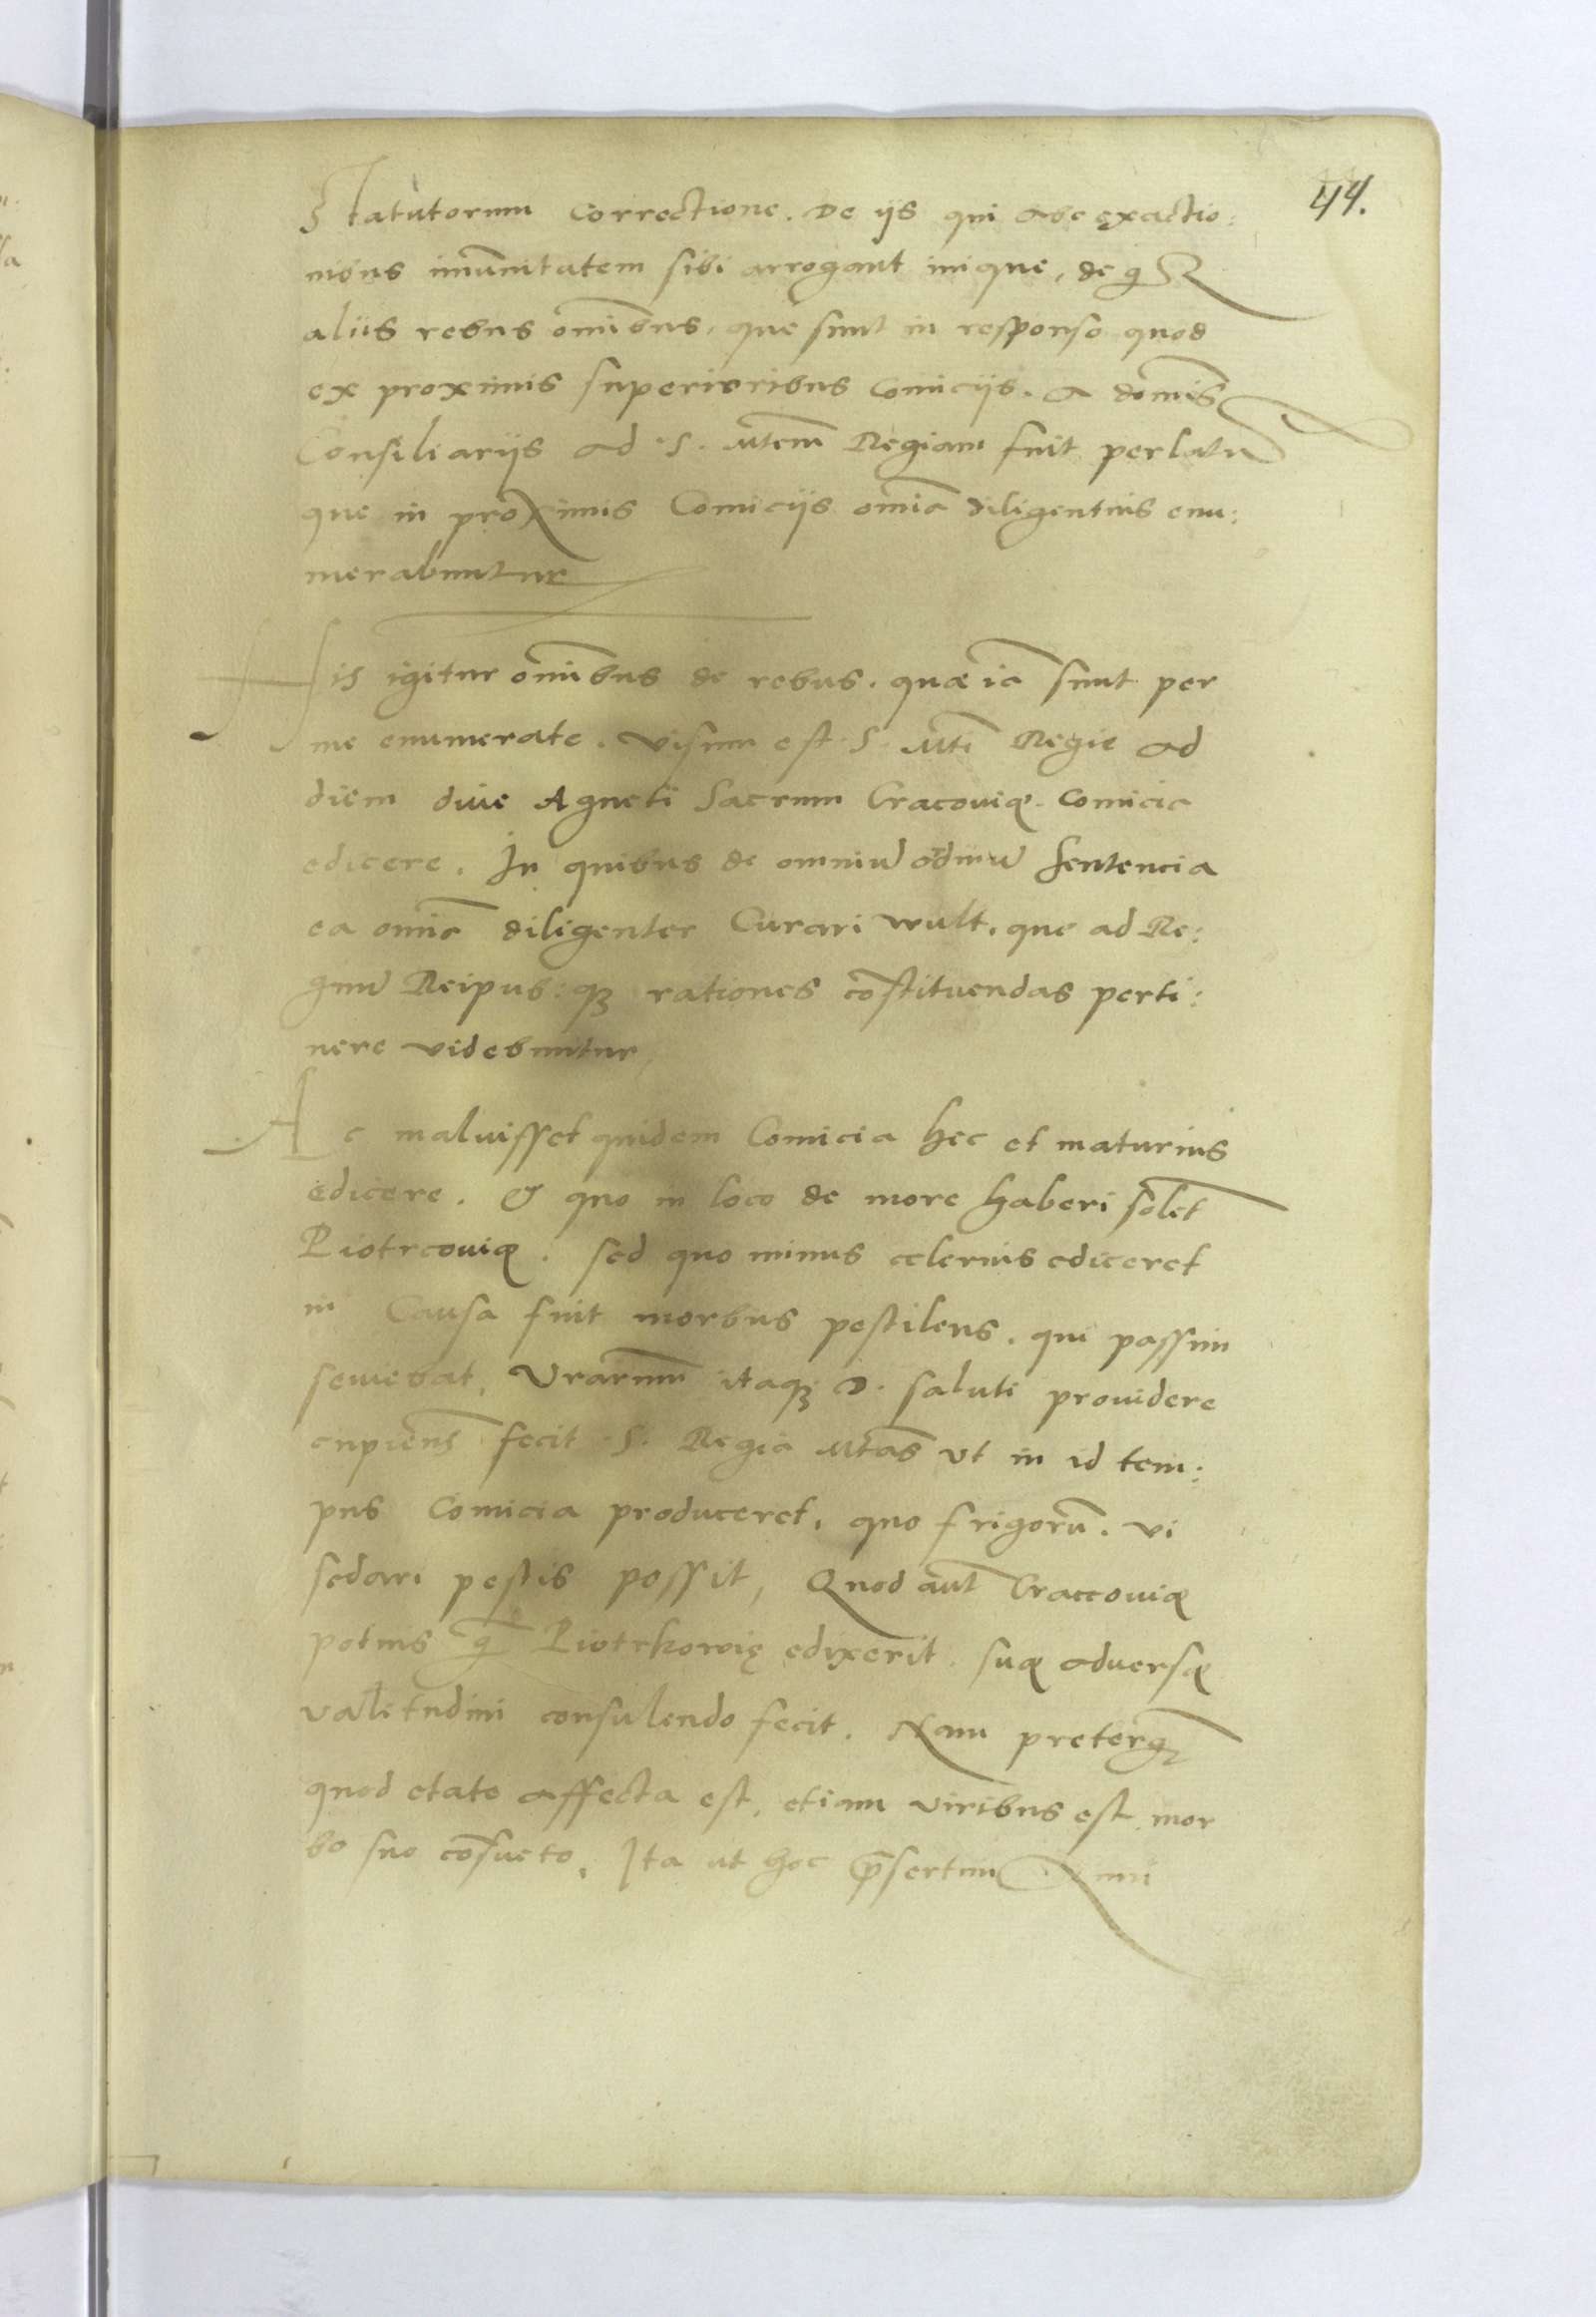 44.
Statutorum correctione. De ijs qui abe exactio:
nibus imunitatem sibi arrogant inique, de q̃
aliis rebus omibus, que sunt in responso quod
ex proximis superioribus Comicijs. a domis
Consiliarijs ad S. Mtem Regiam fuit perlatu
que in proximis Comicijs omia diligentius enu:
merabuntur
His igitur omibus de rebus. quæ iã sunt per
me enumerate. Visum est S. Mti Regie ad
diem dive Agneti Sacrum Cracovię. Comicia
edicere. In quibus de omniu ordinu sentencia
ea omia diligenter Curari wult, que ad Re:
gnu Reipub: qȝ rationes costituendas perti:
nere videbuntur,
Ac maluisset quidem Comicia hec et maturius
edicere. & quo in loco de more haberi solet
Piotrcovię. sed quo minus celerius ediceret
in Causa fuit morbus pestilens. qui passim
seuiebat, Vrarum itaqȝ D. saluti prouidere
cupiens fecit S. Regia Mtas vt in id tem:
pus Comicia produceret, quo frigoru. vi
sedari pestis possit, Quod aut Craccouię
potius q̃ Piotrkowię edixerit. suę adversę
valitudini consulendo fecit. Nam preterq̃
quod etate affecta est, etiam viribus est mor
bo suo cosueto, Ita ut hoc p̃sertim